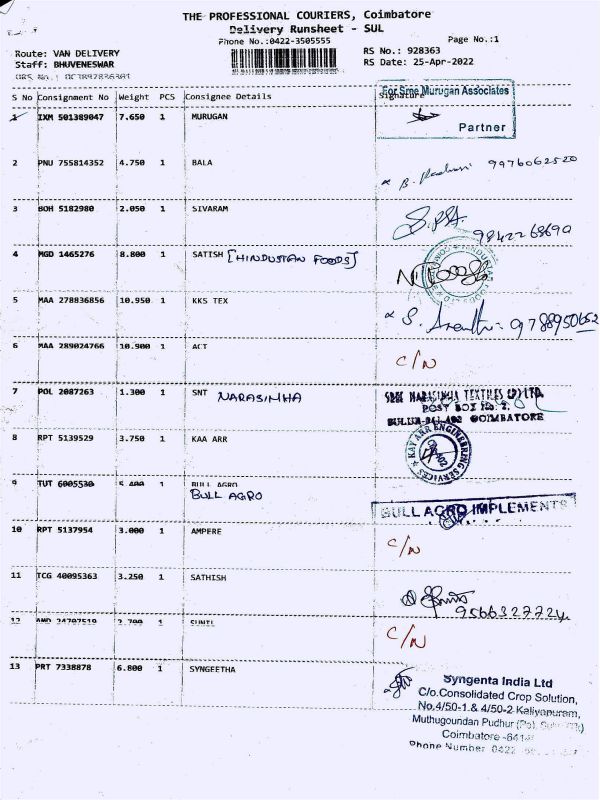 THE PROFESSIONAL COURIERS, Coimbatore
Delivery Runsheet - SUL
Phone No.:0422-3505555
Page No.:1
Route: VAN DELIVERY
RS No.: 928363
Staff: BHUVENESWAR
RS Date: 25-Apr-2022
S No Consignment No Weight PCS Consignee Details Signature
For Sree Murugan Associates
1 IXM 501389047 7.650 1 MURUGAN
Partner
2 PNU 755814352 4.750 1 BALA
9976062520
3 BOH 5182980 2.050 1 SIVARAM
9842268690
4 MGD 1465276 8.800 1 SATISH [HINDUSTAN FOODS]
5 MAA 278836856 10.950 1 KKS TEX
9788950652
6 MAA 289024766 10.900 1 ACT
C/N
7 POL 2087263 1.300 1 SNT NARASIMHA
SREE NARASIMHA TEXTILES (P) LTD.
POST BOX No. 2.
COIMBATORE
8 RPT 5139529 3.750 1 KAA ARR
KAY ARR ENGINEERING SERVICES
9 TUT 6005530 5.400 1 BULL AGRO
BULL AGRO
BULL AGRO IMPLEMENTS
10 RPT 5137954 3.000 1 AMPERE
C/N
11 TCG 40095363 3.250 1 SATHISH
12 AMD 24707519 2.700 1 SUNIL
C/N
13 PRT 7338878 6.800 1 SYNGEETHA
Syngenta India Ltd
C/o.Consolidated Crop Solution,
No.4/50-1.& 4/50-2 Kaliyapuram,
Muthugoundan Pudhur (Po),
Coimbatore
Phone Number 0422